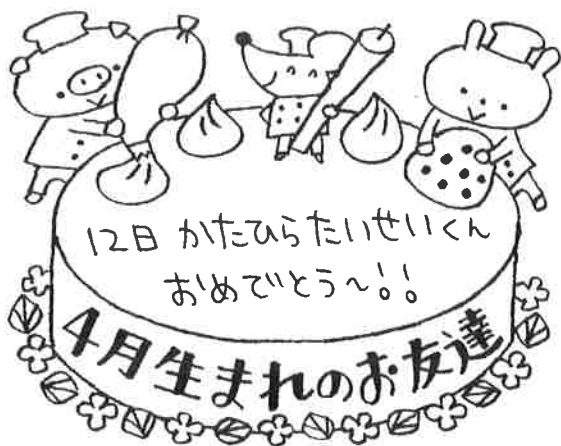 12日 かたひらたいせいくん
おめでとう～!!
4月生まれのお友達